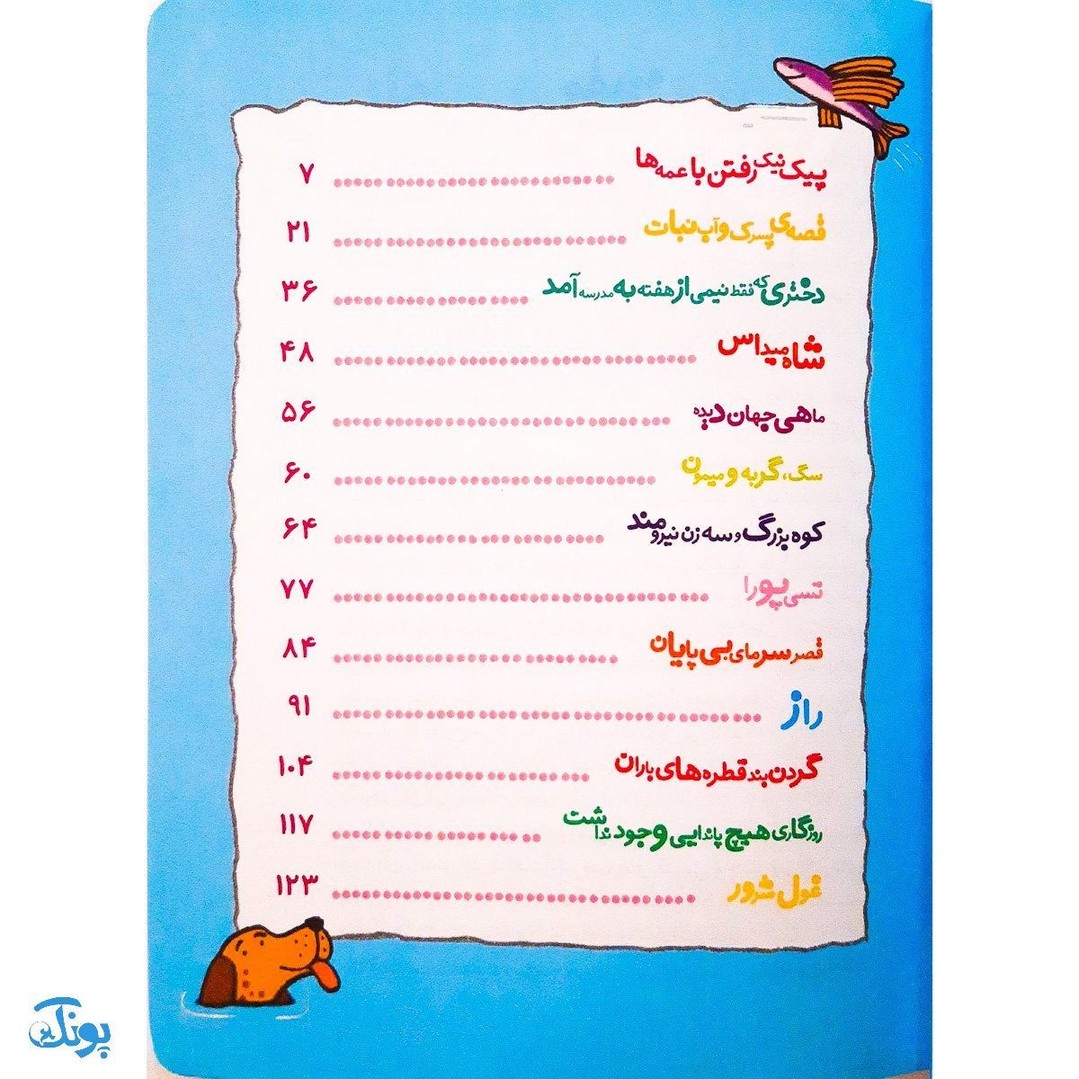 پیک نیک رفتن با عمه ها ۷
قصه‌ی پسرک و آب نبات ۲۱
دختری که فقط نیمی از هفته به مدرسه آمد ۳۶
شاه میداس ۴۸
ماهی جهان دیده ۵۶
سگ، گربه و میمون ۶۰
کوه بزرگ و سه زن نیرومند ۶۴
تسی پورا ۷۷
قصر سرمای بی پایان ۸۴
راز ۹۱
گردن بند قطره های باران ۱۰۴
روزگاری هیچ پاندایی وجود نداشت ۱۱۷
غول شرور ۱۲۳
پونک